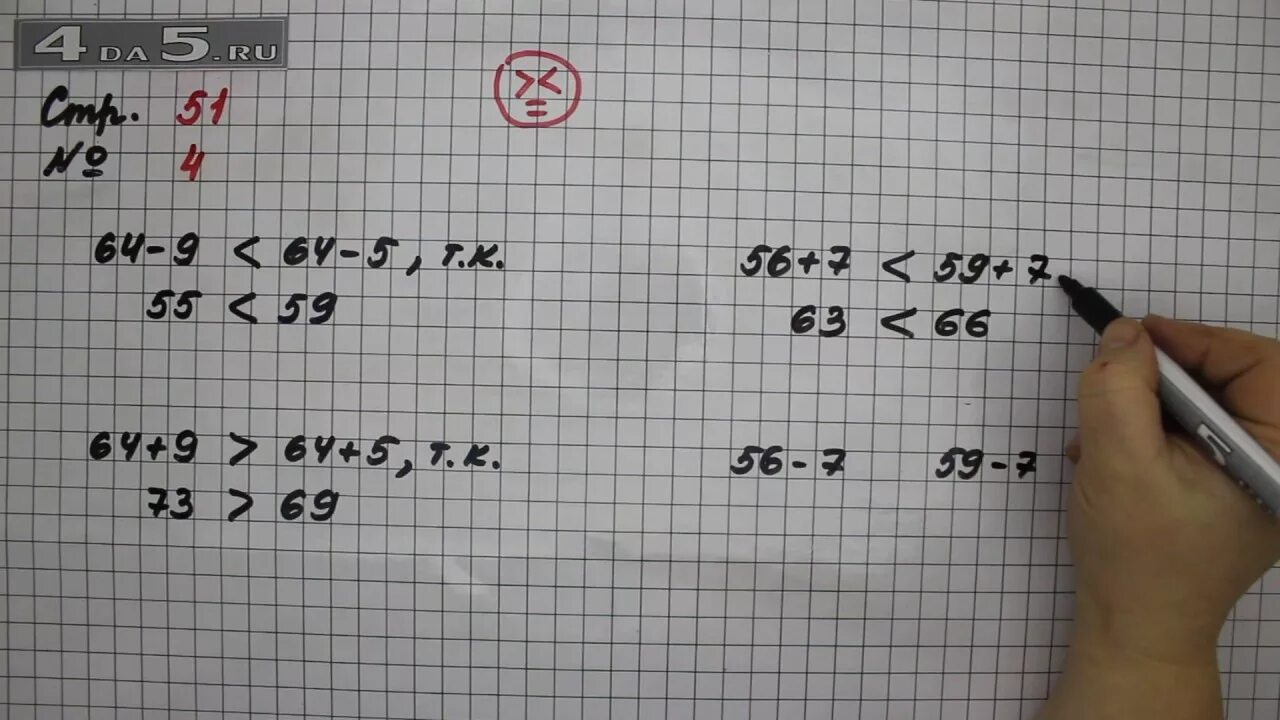 4DA5.RU
><
=
Стр. 51
№ 4
64-9 < 64-5, т.к.
55 < 59
64+9 > 64+5, т.к.
73 > 69
56+7 < 59+7
63 < 66
56-7 59-7